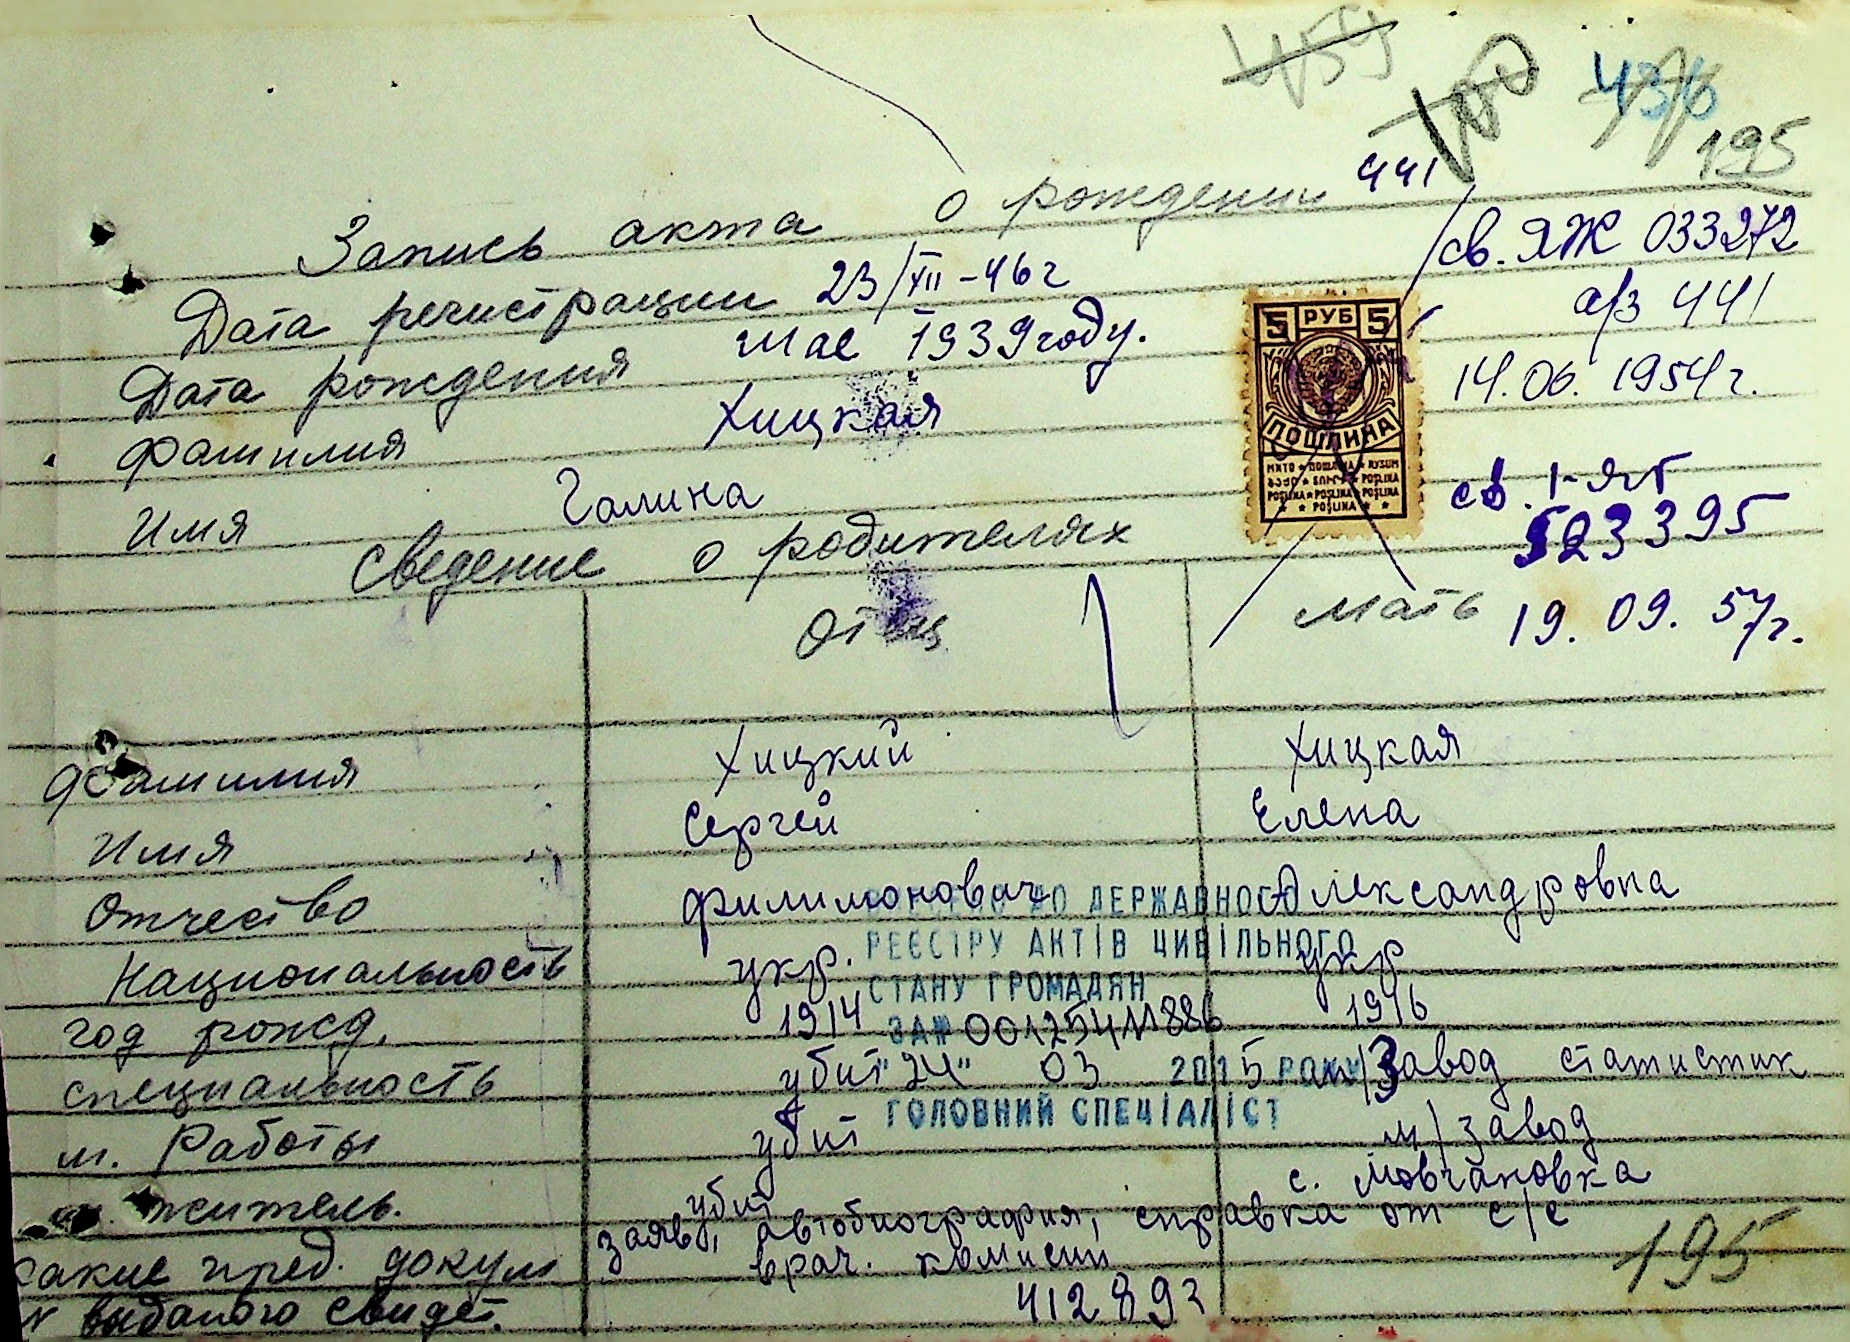 195
Запись акта о рождении 441
св. ЯЖ 033272
а/з 441
14.06. 1954г.
Дата регистрации 23/XII-46г
Дата рождения мае 1939 году.
Фамилия Хицкая
Имя Галина
5 РУБ 5
ПОШЛИНА
POSLINA ★ POSLINA ★ POSLINA
★ ★ POSLINA ★ ★
св. I-ЯБ
523395
19.09.57г.
Сведение о родителях
Отец Мать
Фамилия Хицкий Хицкая
Имя Сергей Елена
Отчество Филимонович Александровна
Национальность укр. укр
год рожд. 1914 1916
специальность убит м/завод статистик
м. Работы убит м/завод
м. житель. убит с. Мовчановка
какие пред. докум заяв, автобиография, справка от с/с
врач. комисии
N выданого свидет. 412893
ДО ДЕРЖАВНОГО
РЕЄСТРУ АКТІВ ЦИВІЛЬНОГО
СТАНУ ГРОМАДЯН
ЗА № 00125411886
"24" 03 2015 РОКУ
ГОЛОВНИЙ СПЕЦІАЛІСТ
195